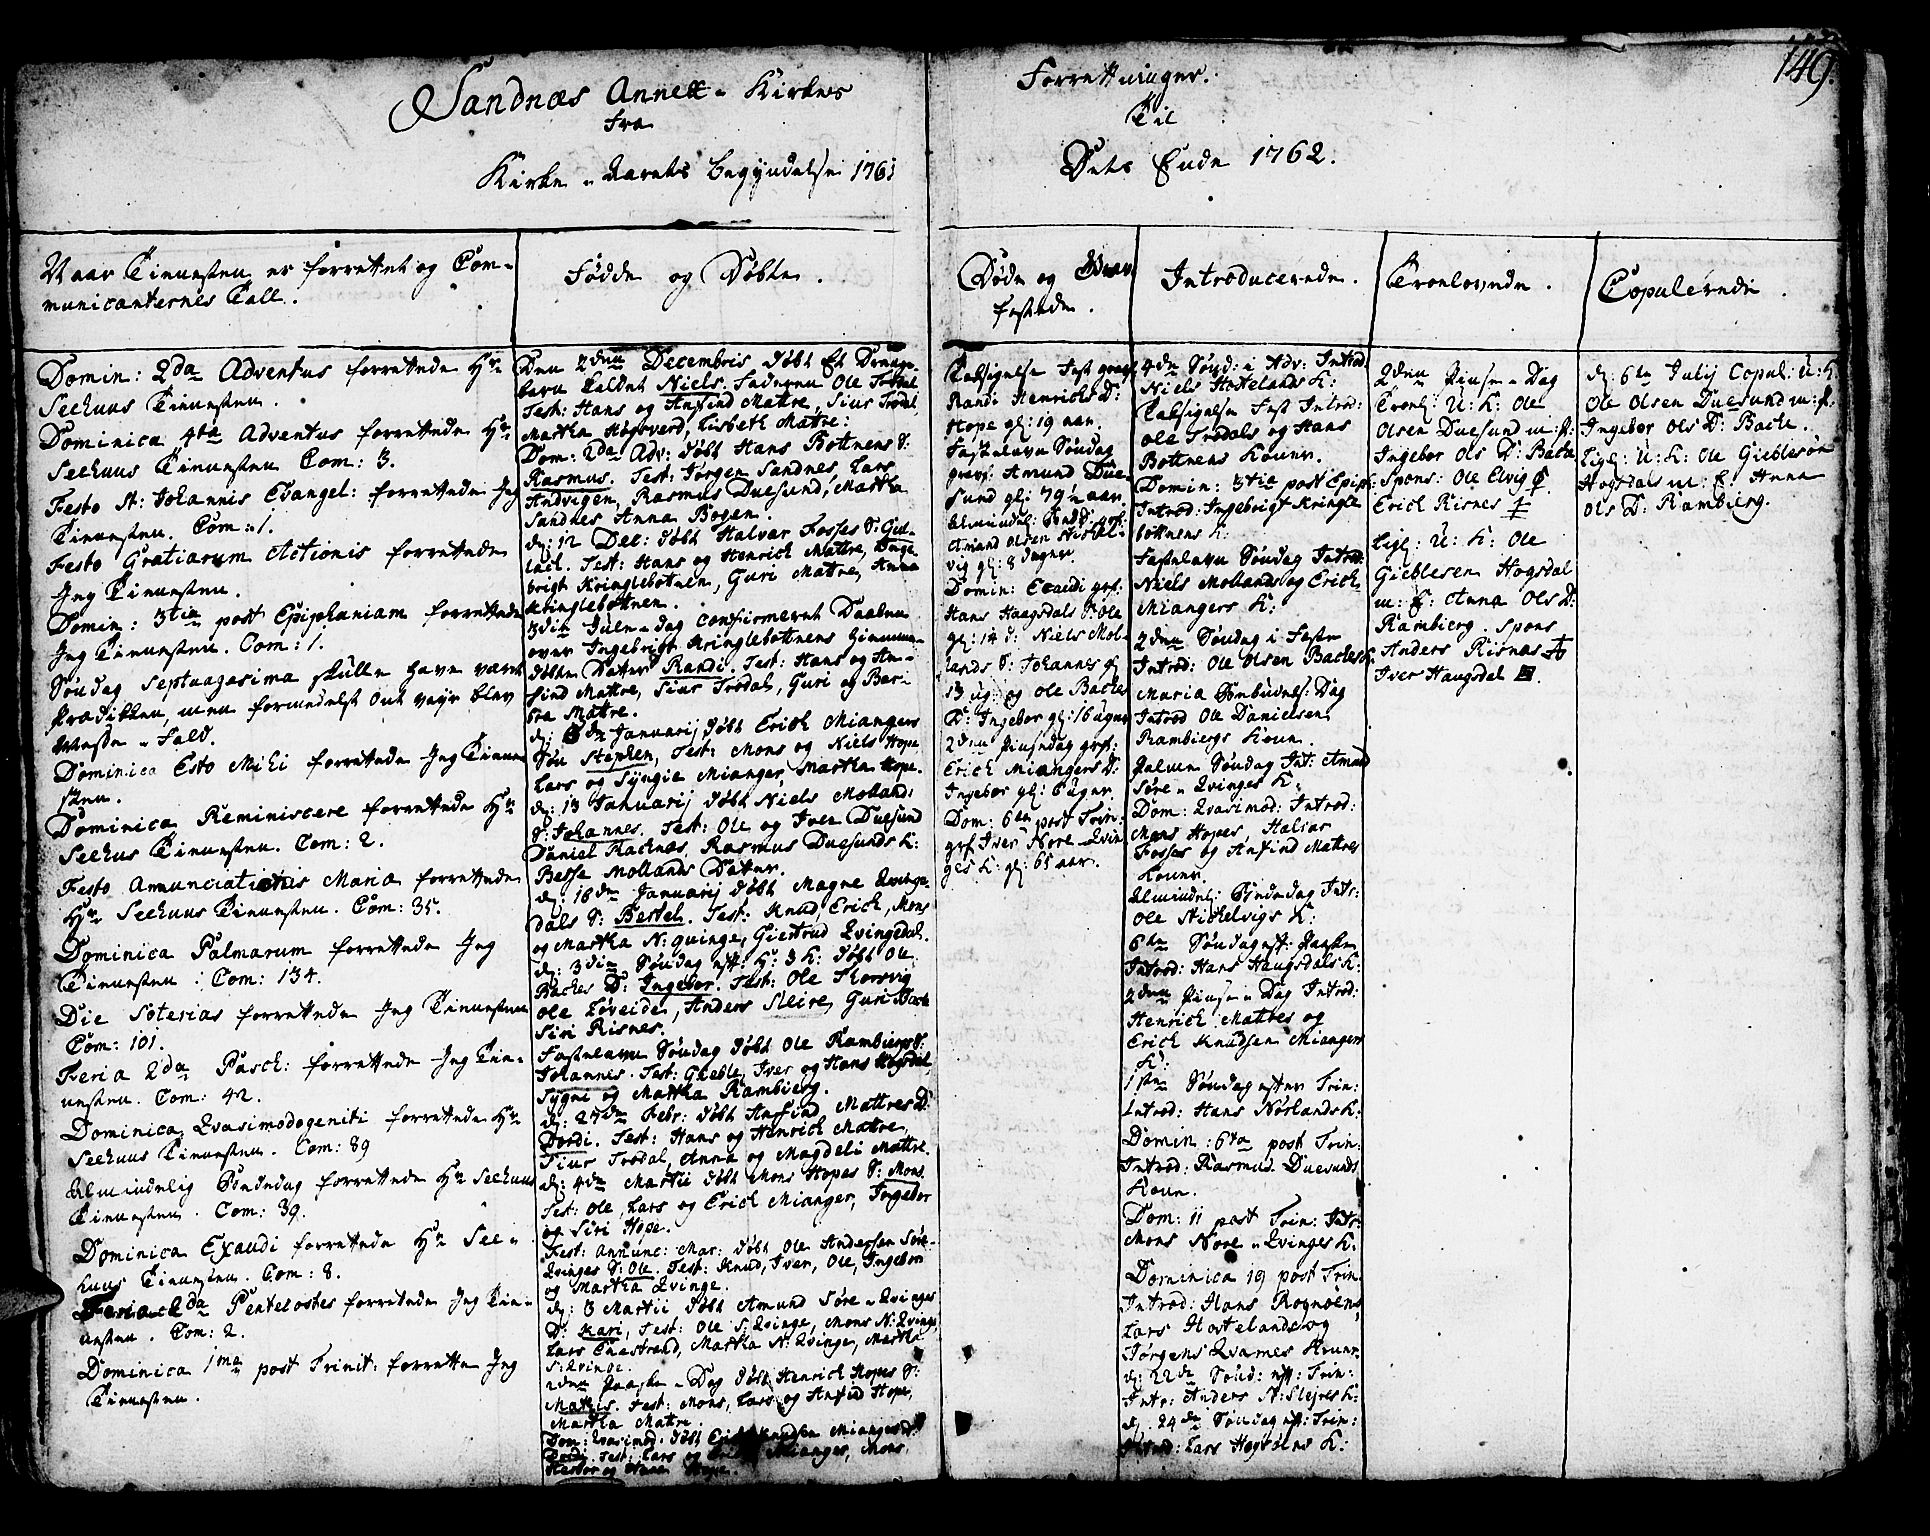 149.
Sandnæs Annex-Kirkes Forretninger.
fra Til
Kirke-Aarets begyndelse 1761 Dets Ende 1762.
Naar Tienesten er forrettet og Com-
municanternes Tall.
Domin: 2da Adventus forrettede Hr
Seehuus Tienesten.
Dominica 4ta Adventus forrettede Hr
Seehuus Tienesten Com: 3.
Festo St: Johannis Evangel: forrettede Jeg
Tienesten. Com: 1.
Festo Gratiarum Actionis forrettede
Jeg Tienesten.
Domin: 3tia post Epiphaniam forrettede
Jeg Tienesten. Com: 1.
Søndag Septuagesima skulle have været
Prædiken, men formedelst ont veyr blev
Messe-Fald.
Dominica Esto Mihi forrettede Jeg Tiene-
sten.
Dominica Reminiscere forrettede Hr
Seehus Tienesten. Com: 2.
Festo Annunciationis Maria forrettede
Hr Seehuus Tienesten. Com: 35.
Dominica Palmarum forrettede Jeg
Tienesten: Com: 134.
Die Soterias forrettede Jeg Tienesten
Com: 101.
Feria 2da Pasch: forrettede Jeg Tien-
esten. Com: 42.
Dominica Qvasimodogeniti forrettede Hr
Seehuus Tienesten. Com: 89
Almindelig Bededag forrettede Hr Seehuus
Tienesten. Com: 39.
Dominica Exaudi forrettede Hr See-
huus Tienesten. Com: 8.
Feria 2da Pentecostes forrettede Jeg Tien-
esten. Com: 2.
Dominica 1ma post Trinit: forrette Jeg
Tienesten.
Fødde og Døbte.
Den 2den Decembris døbt Et Drenge-
barn kaldet Niels. Faderen Ole Trødal
Test: Hans og Anfind Mattre, Siur Trødal,
Martha Høgsverd, Lisbeth Matre:
Dom: 2da Adv: døbt Hans Bottnens S:
Rasmus. Test: Jørgen Sandnes, Lars
Andvigen, Rasmus Duesund, Martha
Sandnes Anna Bogen.
d: 12 Dec: døbt Halvar Fosses S: Gul-
lach. Test: Hans og Henrich Mattre, Inge-
brigt Kringlebottnen, Guri Mattre, Anna
Kringlebottnen.
3die Jule-dag confirmeret Daaben
over Ingebrigt Kringlebottnens hiemme
døbte Datter Randi. Test: Hans og An-
find Mattre, Siur Trødal, Guri og Beri-
tta Matre.
d: 6de Januarij døbt Erich Miangers
Søn Stephen, Test: Mons og Niels Hope
Lars og Syngie Mianger, Martha Hope.
d: 13 Januarij døbt Niels Mollands
S: Johannes. Test: Ole og Iver Duesund
Daniel Kachnæs, Rasmus Duesunds K:
Besse Mollands Datter.
d: 16de Januarij døbt Magne Qvinge-
dals S: Bertel. Test: Knud, Erich, Mons
og Martha N: qvinge, Giertrud Qvingedal.
d: 3die Søndag eft: H: 3 K: døbt Ole
Baches D: Ingebor. Test: Ole Thorsvig
Ole Løveide, Anders Sleire, Guri Bache
Siri Risnes.
Fastelavns Søndag døbt Ole Rambiergs S:
Johannes. Test: Gieble, Iver og Hans Hogsdal
Sygni og Martha Rambierg.
d: 27de Febr: døbt Anfind Mattres D:
Dordi. Test: Hans og Henrich Mattre,
Siur Trødal, Anna og Magdeli Mattre.
d: 4de Martii døbt Mons Hopes S: Mons.
Test: Ole, Lars og Erich Mianger, Ingebor
og Siri Hope.
Fest: Annunc: Mar: døbt Ole Andersen Søre-
Qvinges S: Ole. Test: Knud, Iver, Ole, Ingebor
og Martha Qvinge.
d: 3 Martii døbt Amund Søre-Qvinges
D: Kari, Test: Ole S: Qvinge, Mons N: Qvinge,
Lars Enestrand, Martha N: Qvinge, Martha
S: Qvinge.
2den Paaske-Dag døbt Henrich Hopes S:
Mathis. Test: Mons, Lars og Anfind Hope,
Martha Mattre.
Dom: Qvasimod. døbt Erich Knudsen Miangers D:
Dordi. Test: Lars og Mianger, Mons
Hope.
Døde og
festede.
Taksigelse Fest gravf:
Randi Henrichs D:
Hope gl: 19 aar.
Fastelavns Søndag
gravf: Amund Due-
sund gl: 79 1/2 aar.
Almindel: Bededag grf:
Amund Olsen Nickel-
vig gl: 8 dager.
Domin: Exaudi grf:
Hans Haugsdals S: Ole
gl: 14 d: Niels Mol-
lands S: Johannes gl:
13 ug: og Ole Baches
D: Ingebor gl: 16 uger
2den Pinsedag grf:
Erich Miangers D:
Ingebor gl: 6 uger
Dom: 6ta post Trin:
grf. Iver Nore-Qvin-
ges K: gl: 65 aar.
Introducerede.
4de Sønd: i Adv: Introd
Niels Hostelands K:
Taksigelse Fest Introd:
Ole Trødals og Hans
Bottnens Koner.
Domin: 3tia post Epiph:
Introd: Ingebrigt Kringle
bottnens K:
Fastelavns Søndag Introd:
Niels Mollands og Erich
Miangers K:
2den Søndag i Faste
Introd: Ole Olsen Baches K:
Maria Bebudelses Dag
Introd Ole Danielsen
Rambiergs Kone
Palme Søndag Int: Amund
Søre-Qvinges K:
Dom: Qvasimod: Introd:
Mons Hopes, Halvar
Fosses og Anfind Mattres
Koner
Almindel: Bededag Intr:
Ole Nickelvigs K:
6te Søndag eft: Paaske
Introd: Hans Haugsdals K:
2den Pinse-Dag Introd:
Henrich Mattres og
Erich Knudsen Miangers
K:
1ste Søndag efter Trin:
Introd: Hans Nørlands K:
Domin: 6ta post Trin:
Introd: Rasmus Duesunds
Kone.
Dom: 11 post Trin: Intr:
Mons Nore-Qvinges K:
Dominica 19 post Trin.
Introd: Hans Rognøens,
Lars Hostelands og
Jørgens Qvames Koner
d: 22de Sønd: eft: Trin:
Intr: Anders N: Slejres K:
d. 24de Søndag eft: Trin:
Introd: Lars Høysæters K:
Troelovede.
2den Pinse-Dag
Troel: U: K: Ole
Olsen Duesund m: P:
Ingebor Ols D: Bache
Spons: Ole Elvig
Erich Risnes
Ligl: U: K: Ole
Gieblesen Hogsdal
m: P: Anna Ols D:
Rambierg. Spons
Anders Risnes
Iver Haugsdal
Copulerede.
d: 6te Julij Copul: U: K:
Ole Olsen Duesund m: P:
Ingebor Ols D: Bache.
Ligl: U: K: Ole Gieblesøn
Hogsdals m: P: Anna
Ols D: Rambierg.